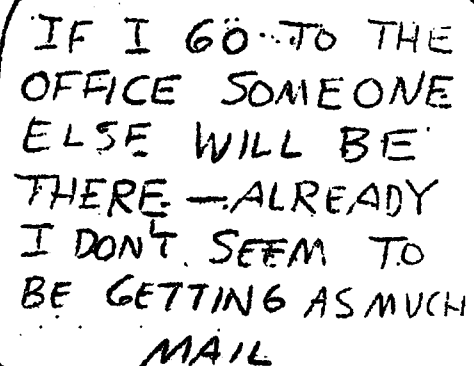 IF I GO TO THE
OFFICE SOMEONE
ELSE WILL BE
THERE — ALREADY
I DON'T SEEM TO
BE GETTING AS MUCH
MAIL